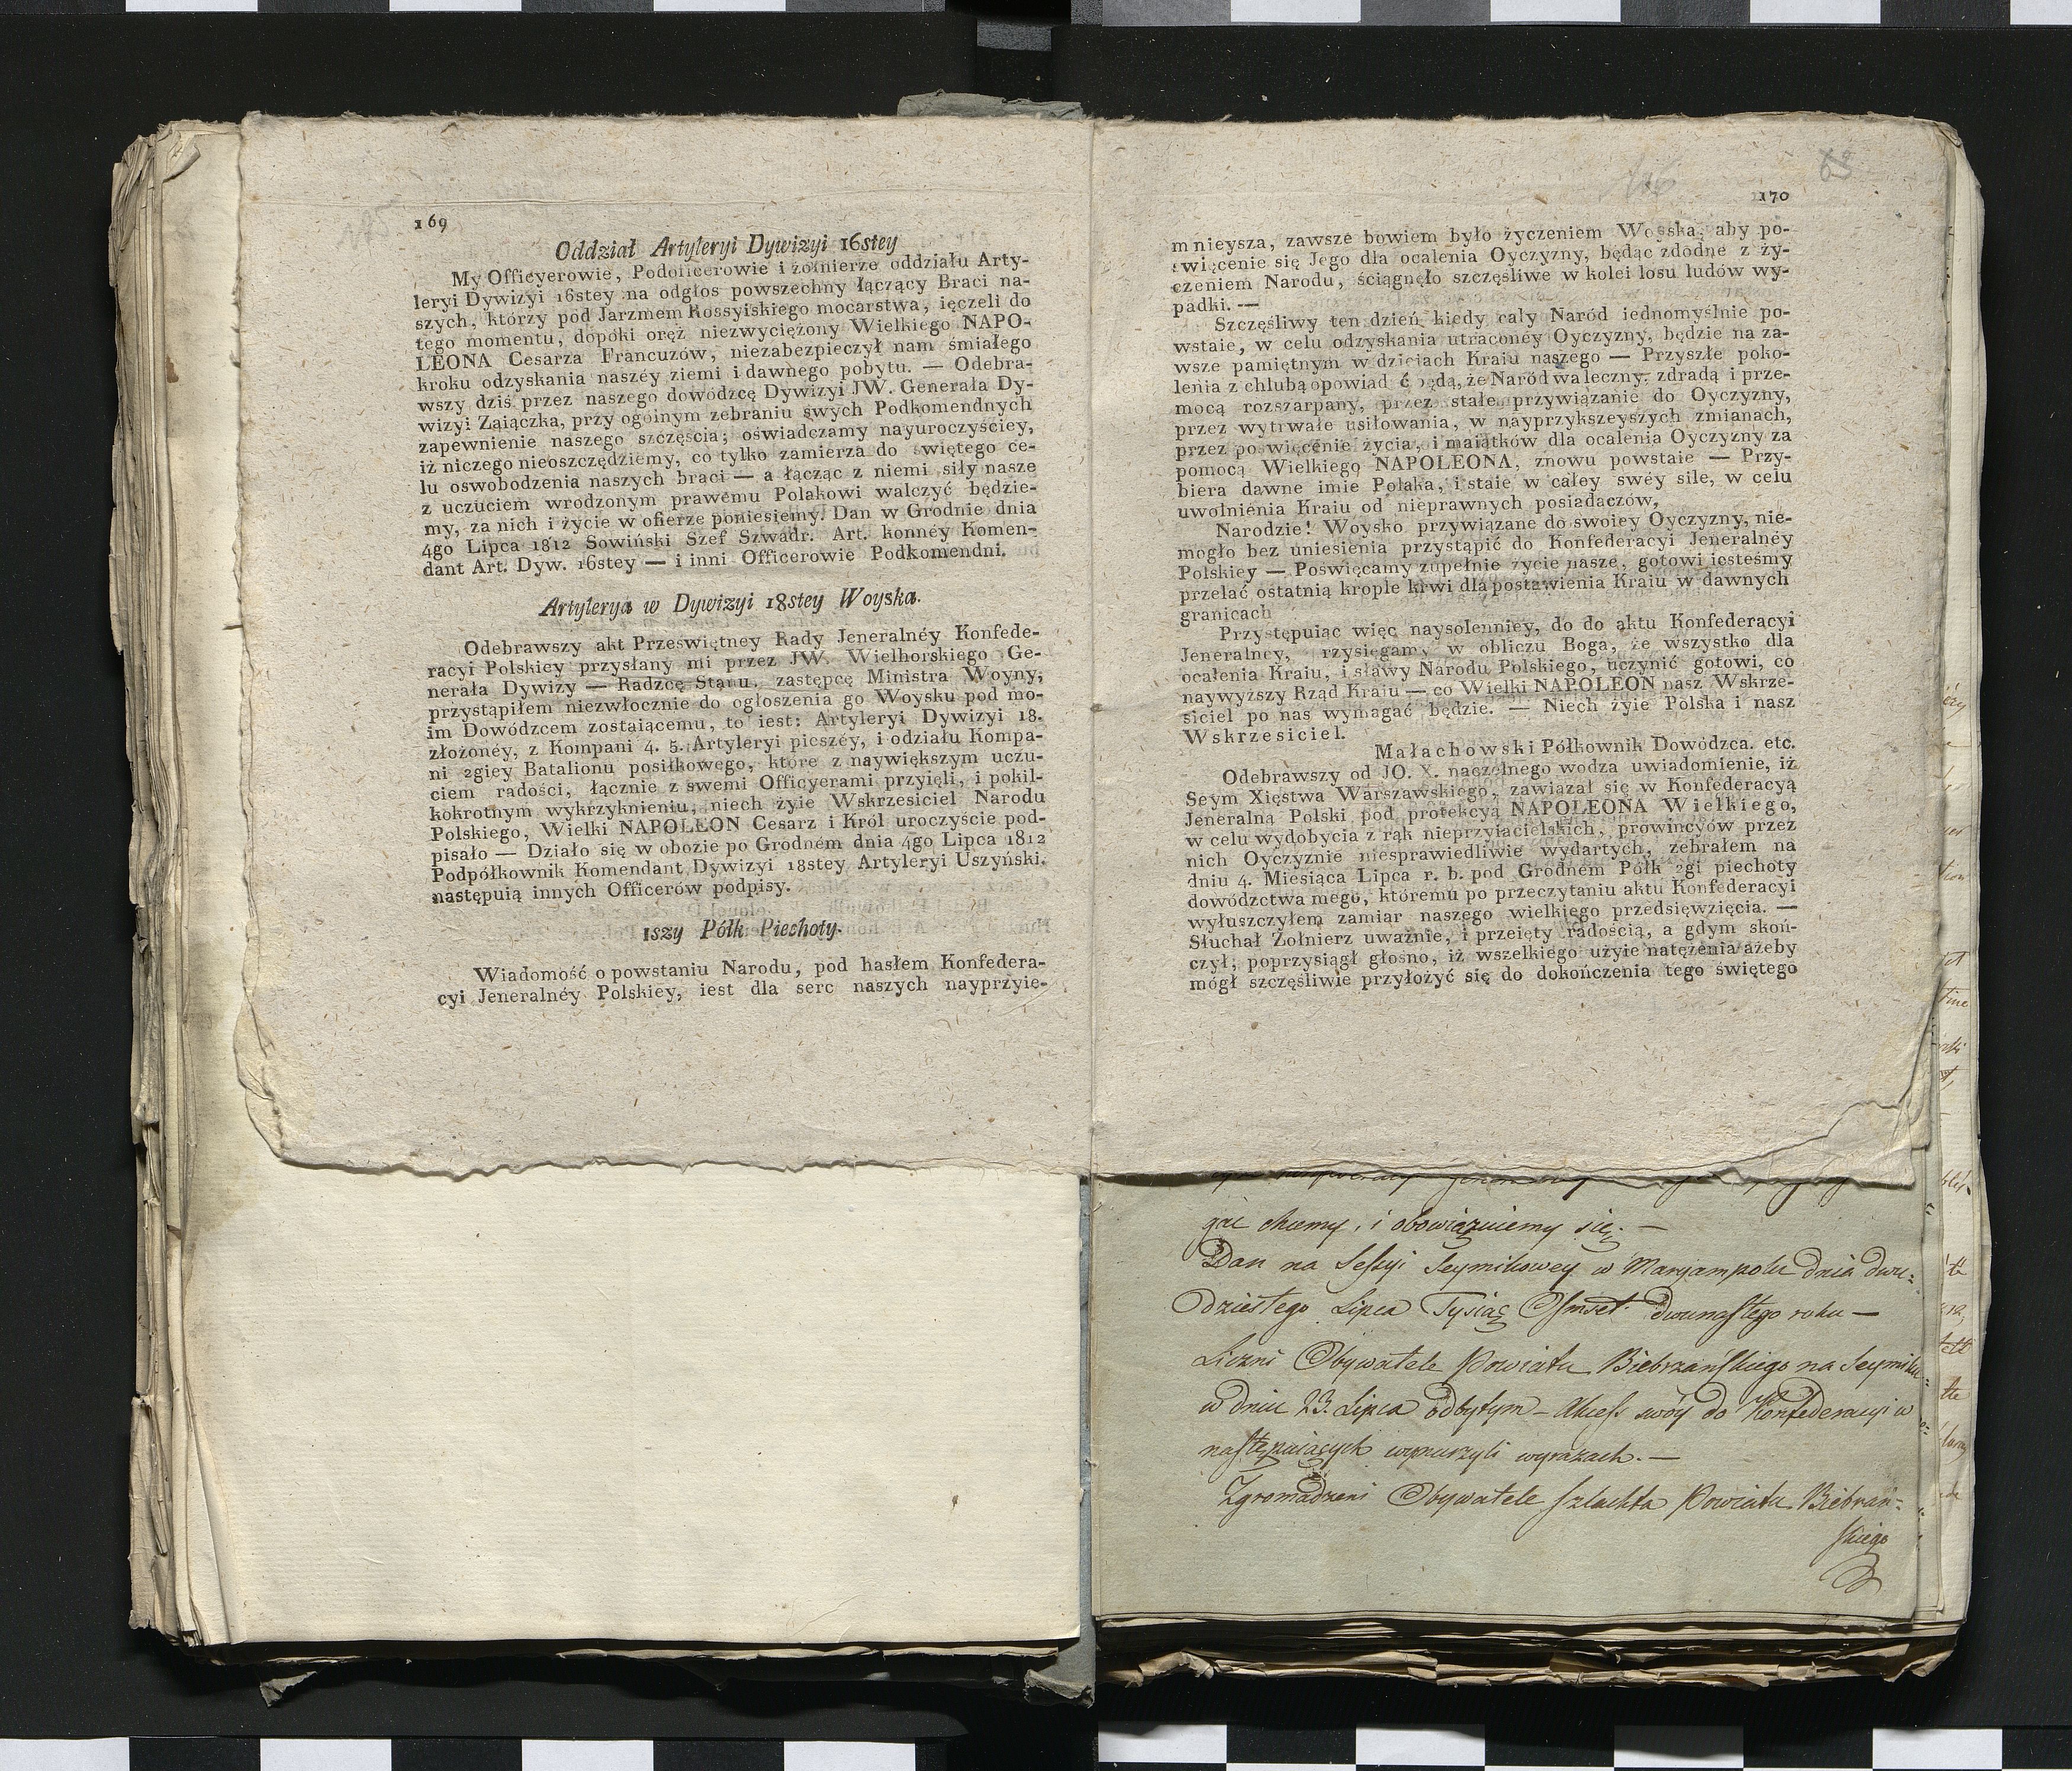 169
Oddział Artyleryi Dywizyi 16stey
My Officyerowie, Podofficerowie i żołnierze oddziału Arty-
leryi Dywizyi 16stey na odgłos powszechny łączący Braci na-
szych, którzy pod Jarzmem Rossyiskiego mocarstwa, ięczeli do
tego momentu, dopóki oręż niezwyciężony Wielkiego NAPO-
LEONA Cesarza Francuzów, niezabezpieczył nam śmiałego
kroku odzyskania naszéy ziemi i dawnego pobytu. — Odebra-
wszy dziś przez naszego dowódzcę Dywizyi JW. Generała Dy-
wizyi Zaiączka, przy ogólnym zebraniu swych Podkomendnych
zapewnienie naszego szczęścia; oświadczamy nayuroczyściey,
iż niczego nieoszczędziemy, co tylko zamierza do świętego ce-
lu oswobodzenia naszych braci — a łącząc z niemi siły nasze
z uczuciem wrodzonym prawému Polakowi walczyć będzie-
my, za nich i życie w ofierze poniesiemy. Dan w Grodnie dnia
4go Lipca 1812 Sowiński Szef Szwadr. Art. konnéy Komen-
dant Art. Dyw. 16stey — i inni Officerowie Podkomendni.
Artylerya w Dywizyi 18stey Woyska.
Odebrawszy akt Przeświętney Rady Jeneralnéy Konfede-
racyi Polskiey przysłany mi przez JW. Wielhorskiego Ge-
nerała Dywizy — Radzcę Stanu, zastępcę Ministra Woyny,
przystąpiłem niezwłocznie do ogłoszenia go Woysku pod mo-
im Dowódzcem zostaiącemu, to iest: Artyleryi Dywizyi 18.
złożonéy, z Kompani 4. 5. Artyleryi pieszéy, i odziału Kompa-
ni 2giey Batalionu posiłkowego, które z naywiększym uczu-
ciem radości, łącznie z swemi Officyerami przyięli, i pokil-
kokrotnym wykrzyknieniu, niech żyie Wskrzesiciel Narodu
Polskiego, Wielki NAPOLEON Cesarz i Król uroczyście pod-
pisało — Działo się w obozie po Grodném dnia 4go Lipca 1812
Podpółkownik Komendant Dywizyi 18stey Artyleryi Uszyński.
następuią innych Officerów podpisy.
1szy Półk Piechoty.
Wiadomość o powstaniu Narodu, pod hasłem Konfedera-
cyi Jeneralnéy Polskiey, iest dla serc naszych nayprzyie-
63
170
mnieysza, zawsze bowiem było życzeniem Woyska, aby po-
święcenie się Jego dla ocalenia Oyczyzny, będąc zdodne z ży-
czeniem Narodu, ściągnęło szczęśliwe w kolei losu ludów wy-
padki. —
Szczęśliwy ten dzień, kiedy cały Naród iednomyślnie po-
wstaie, w celu odzyskania utraconéy Oyczyzny, będzie na za-
wsze pamiętnym w dzieiach Kraiu naszego — Przyszłe poko-
lenia z chlubą opowiad ć będą, że Naród waleczny, zdradą i prze-
mocą rozszarpany, przez stałe przywiązanie do Oyczyzny,
przez wytrwałe usiłowania, w nayprzykszeyszych zmianach,
przez poświęcénie życia, i maiątków dla ocalenia Oyczyzny za
pomocą Wielkiego NAPOLEONA, znowu powstaie — Przy-
biera dawne imie Polaka, i staie w całey swéy sile, w celu
uwolnienia Kraiu od nieprawnych posiadaczów,
Narodzie! Woysko przywiązane do swoiey Oyczyzny, nie-
mogło bez uniesienia przystąpić do Konfederacyi Jeneralnéy
Polskiey — Poświęcamy zupełnie życie nasze, gotowi iesteśmy
przelać ostatnią krople krwi dla postawienia Kraiu w dawnych
granicach
Przystępuiąc więc naysolenniey, do do aktu Konfederacyi
Jeneralney, rzysięgamy w obliczu Boga, że wszystko dla
ocalenia Kraiu, i sławy Narodu Polskiego, uczynić gotowi, co
naywyższy Rząd Kraiu — co Wielki NAPOLEON nasz Wskrze-
siciel po nas wymagać będzie. — Niech żyie Polska i nasz
Wskrzesiciel.
Małachowski Półkownik Dowódzca. etc.
Odebrawszy od JO. X. naczelnego wodza uwiadomienie, iż
Seym Xięstwa Warszawskiego, zawiązał się w Konfederacyą
Jeneralną Polski pod protekcyą NAPOLEONA Wielkiego,
w celu wydobycia z rąk nieprzyiacielskich, prowincyów przez
nich Oyczyznie niesprawiedliwie wydartych, zebrałem na
dniu 4. Miesiąca Lipca r. b. pod Grodném Półk 2gi piechoty
dowództwa mego, któremu po przeczytaniu aktu Konfederacyi
wyłuszczyłem zamiar naszego wielkiego przedsięwzięcia. —
Słuchał Żołnierz uważnie, i przeięty radością, a gdym skoń-
czył; poprzysiągł głosno, iż wszelkiego użyie natężenia ażeby
mógł szczęśliwie przyłożyć się do dokończenia tego świętego
gać chcemy, i obowiązuiemy się. —
Dan na Sessyi Seymikowey w Maryampolu dnia dwu-
dziestego Lipca Tysiąc Osmset dwunastego roku —
Liczni Obywatele Powiatu Biebrzańskiego na Seymiku
w dniu 23. Lipca odbytym — Akces swóy do Konfederacyi w
następuiących wynurzyli wyrazach. —
Zgromadzeni Obywatele szlachta Powiatu Biebrzań-
skiego